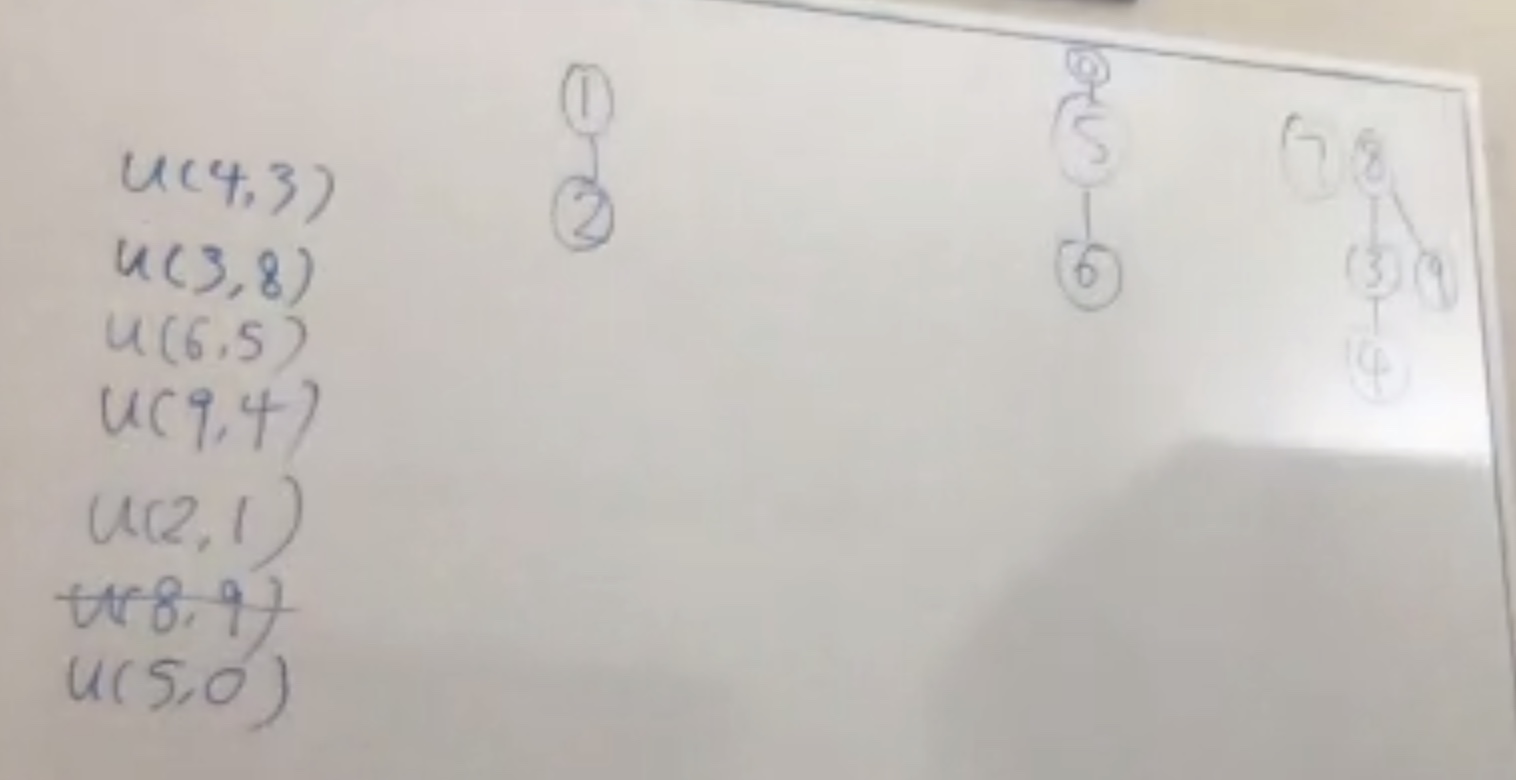 u(4,3)
u(3,8)
u(6,5)
u(9,4)
u(2,1)
u(8,9)
u(5,0)
1
2
0
5
6
7 8
3 9
4